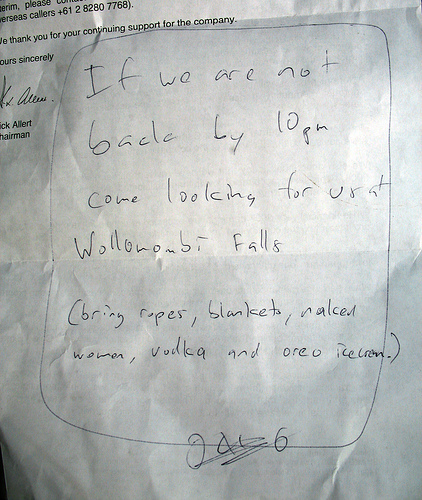 terim, please
verseas callers +61 2 8280 7768).
We thank you for your continuing support for the company.
ours sincerely
ick Allert
hairman
If we are not
back by 10pm
come looking for us at
Wollomombi Falls
(bring ropes, blankets, naked
women, vodka and oreo icecream.)
6